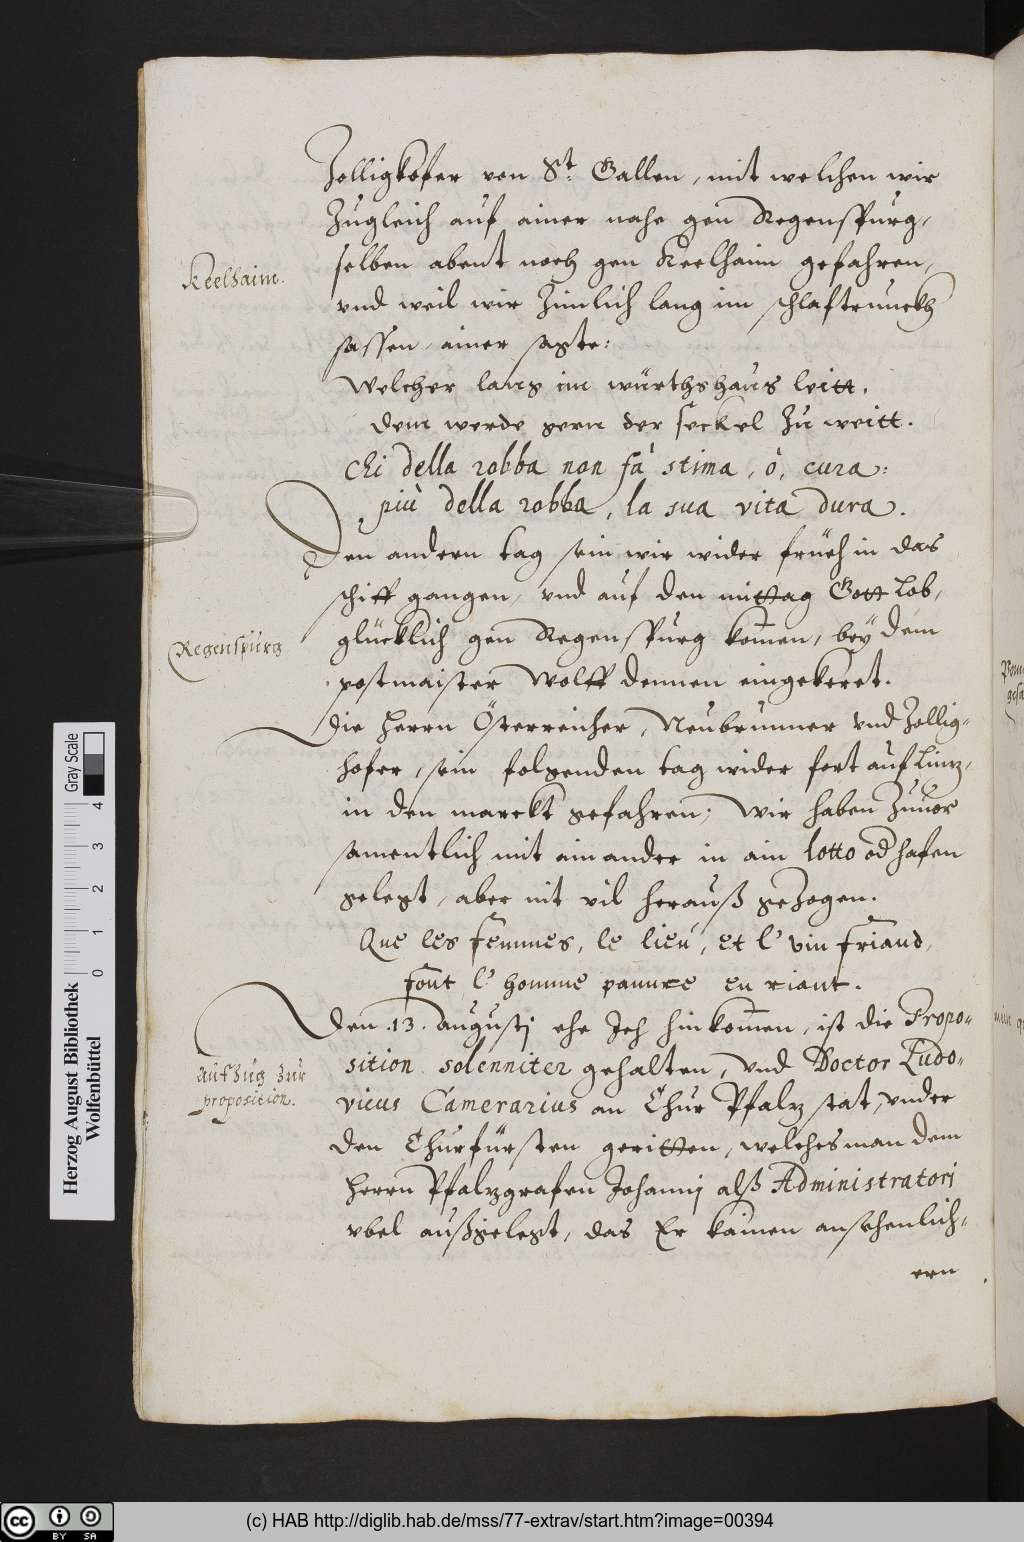 Zolligkofer von St. Gallen, mit welchen wir
Zugleich auf ainer nahe gen Regenspurg,
selben abent noch gen Keelhaim gefahren,
Keelhaim.
vnd weil wir Zimlich lang im schlaftrunckh
sassen, ainer sagte:
Welcher lang im würthshaus leitt.
dem werde gern der seckel Zu weitt.
Chi della robba non fà stima, ò, cura:
più della robba, la sua vita dura.
Den andern tag sein wir wider früeh in das
schiff gangen, vnd auf den mittag Gott Lob,
glücklich gen Regenspurg komen, beÿ dem
Regenspurg
postmaister Wolff dennen eingekeret.
die herrn Österreicher, Neubrunner vnd Zollig-
hofer, sein folgenden tag wider fort auf Lintz,
in den marckt gefahren; Wir haben Zuuor
samentlich mit ainander in ain lotto od hafen
gelegt, aber nit vil herauß gezogen.
Que les femmes, le lieu, et l' vin friand,
font l' homme pauure en riant.
den .13. augustj ehe Jch hinkomen, ist die Propo-
sition solenniter gehalten, vnd Doctor Ludo-
Aufzug zur
proposition.
vicus Camerarius an Chur Pfaltz stat, vnder
den Churfürsten geritten, welches man dem
herrn Pfaltzgrafen Johannj alß Administratorj
vbel außgelegt, das Er kainen ansehenlich-
ern
Herzog August Bibliothek
Wolfenbüttel
Gray Scale
0 1 2 3 4
(c) HAB http://diglib.hab.de/mss/77-extrav/start.htm?image=00394
cc BY SA